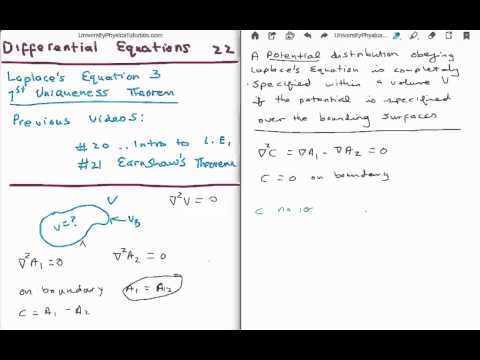 UniversityPhysicsTutorials.com
Differential Equations 22
Laplace's Equation 3
1st Uniqueness Theorem
Previous videos:
#20 .. Intro to L.E,
#21 Earnshaw's Theorem
V
∇²V = 0
V=?
VB
∇²A₁=0
∇²A₂ = 0
on boundary A₁ = A₂
C = A₁ - A₂
UniversityPhysicsTutorials.com
A Potential distribution obeying
Laplace's Equation is completely
specified within a volume V
if the potential is specified
over the bounding surfaces
∇²C = ∇A₁ - ∇A₂ = 0
C = 0 on boundary
C no